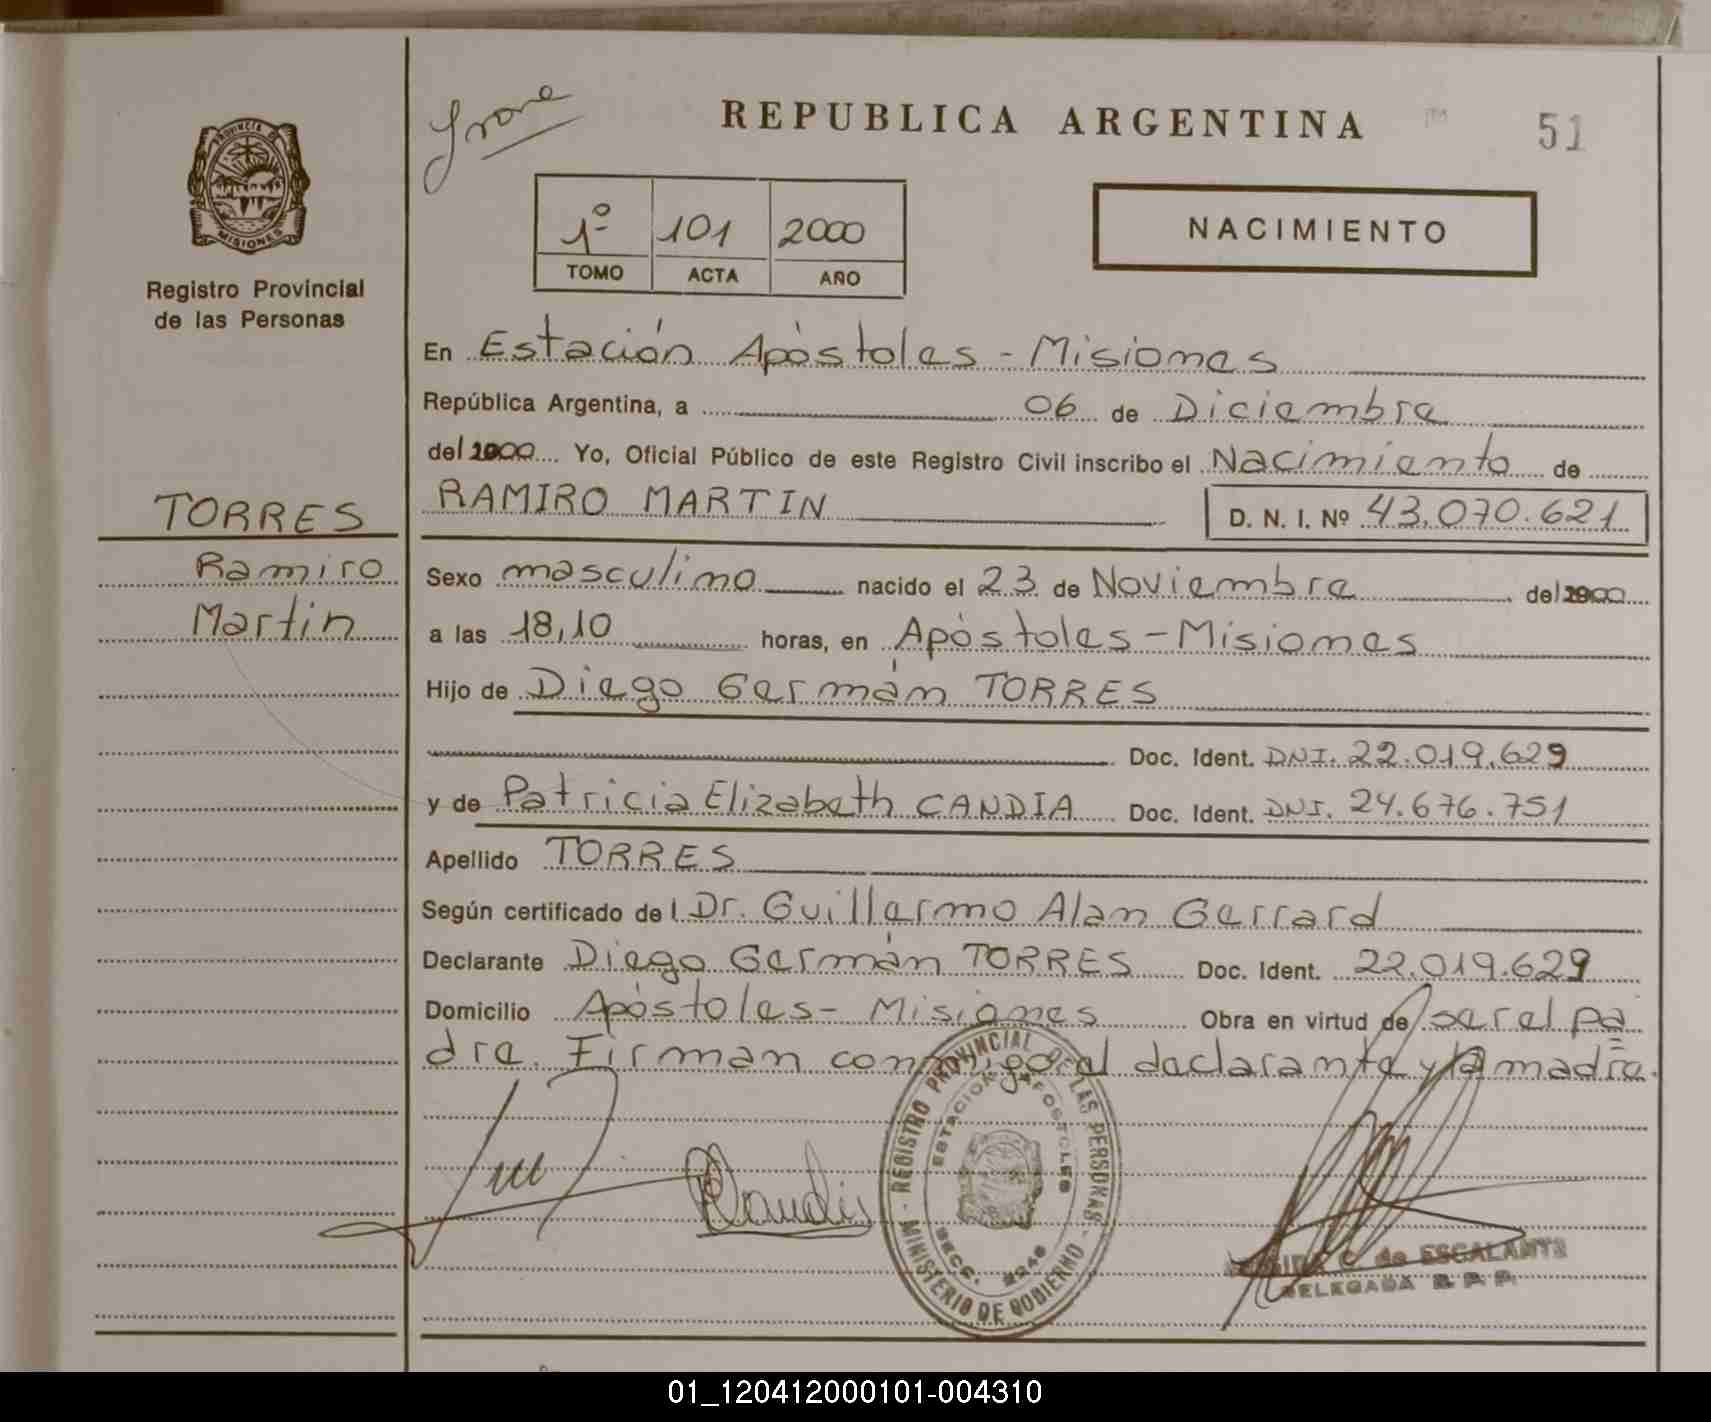 Irane
REPUBLICA ARGENTINA
51
PROVINCIA DE
MISIONES
Registro Provincial
de las Personas
1º 101 2000
TOMO ACTA AÑO
NACIMIENTO
En Estación Apóstoles - Misiones
República Argentina, a 06 de Diciembre
del 2000 Yo, Oficial Público de este Registro Civil inscribo el Nacimiento de
RAMIRO MARTIN D. N. I. Nº 43.070.621
TORRES
Ramiro
Martin
Sexo masculino nacido el 23 de Noviembre del 2000
a las 18,10 horas, en Apóstoles - Misiones
Hijo de Diego Germán TORRES
Doc. Ident. DNI. 22.019.629
y de Patricia Elizabeth CANDIA Doc. Ident. DNI. 24.676.751
Apellido TORRES
Según certificado del Dr. Guillermo Alan Gerrard
Declarante Diego Germán TORRES Doc. Ident. 22.019.629
Domicilio Apóstoles - Misiones Obra en virtud de ser el pa
dre. Firman conmigo el declarante y la madre.
REGISTRO PROVINCIAL DE LAS PERSONAS
MINISTERIO DE GOBIERNO
ESTACION APOSTOLES
SECC.
C de ESCALANTE
DELEGADA R. P. P.
01_120412000101-004310